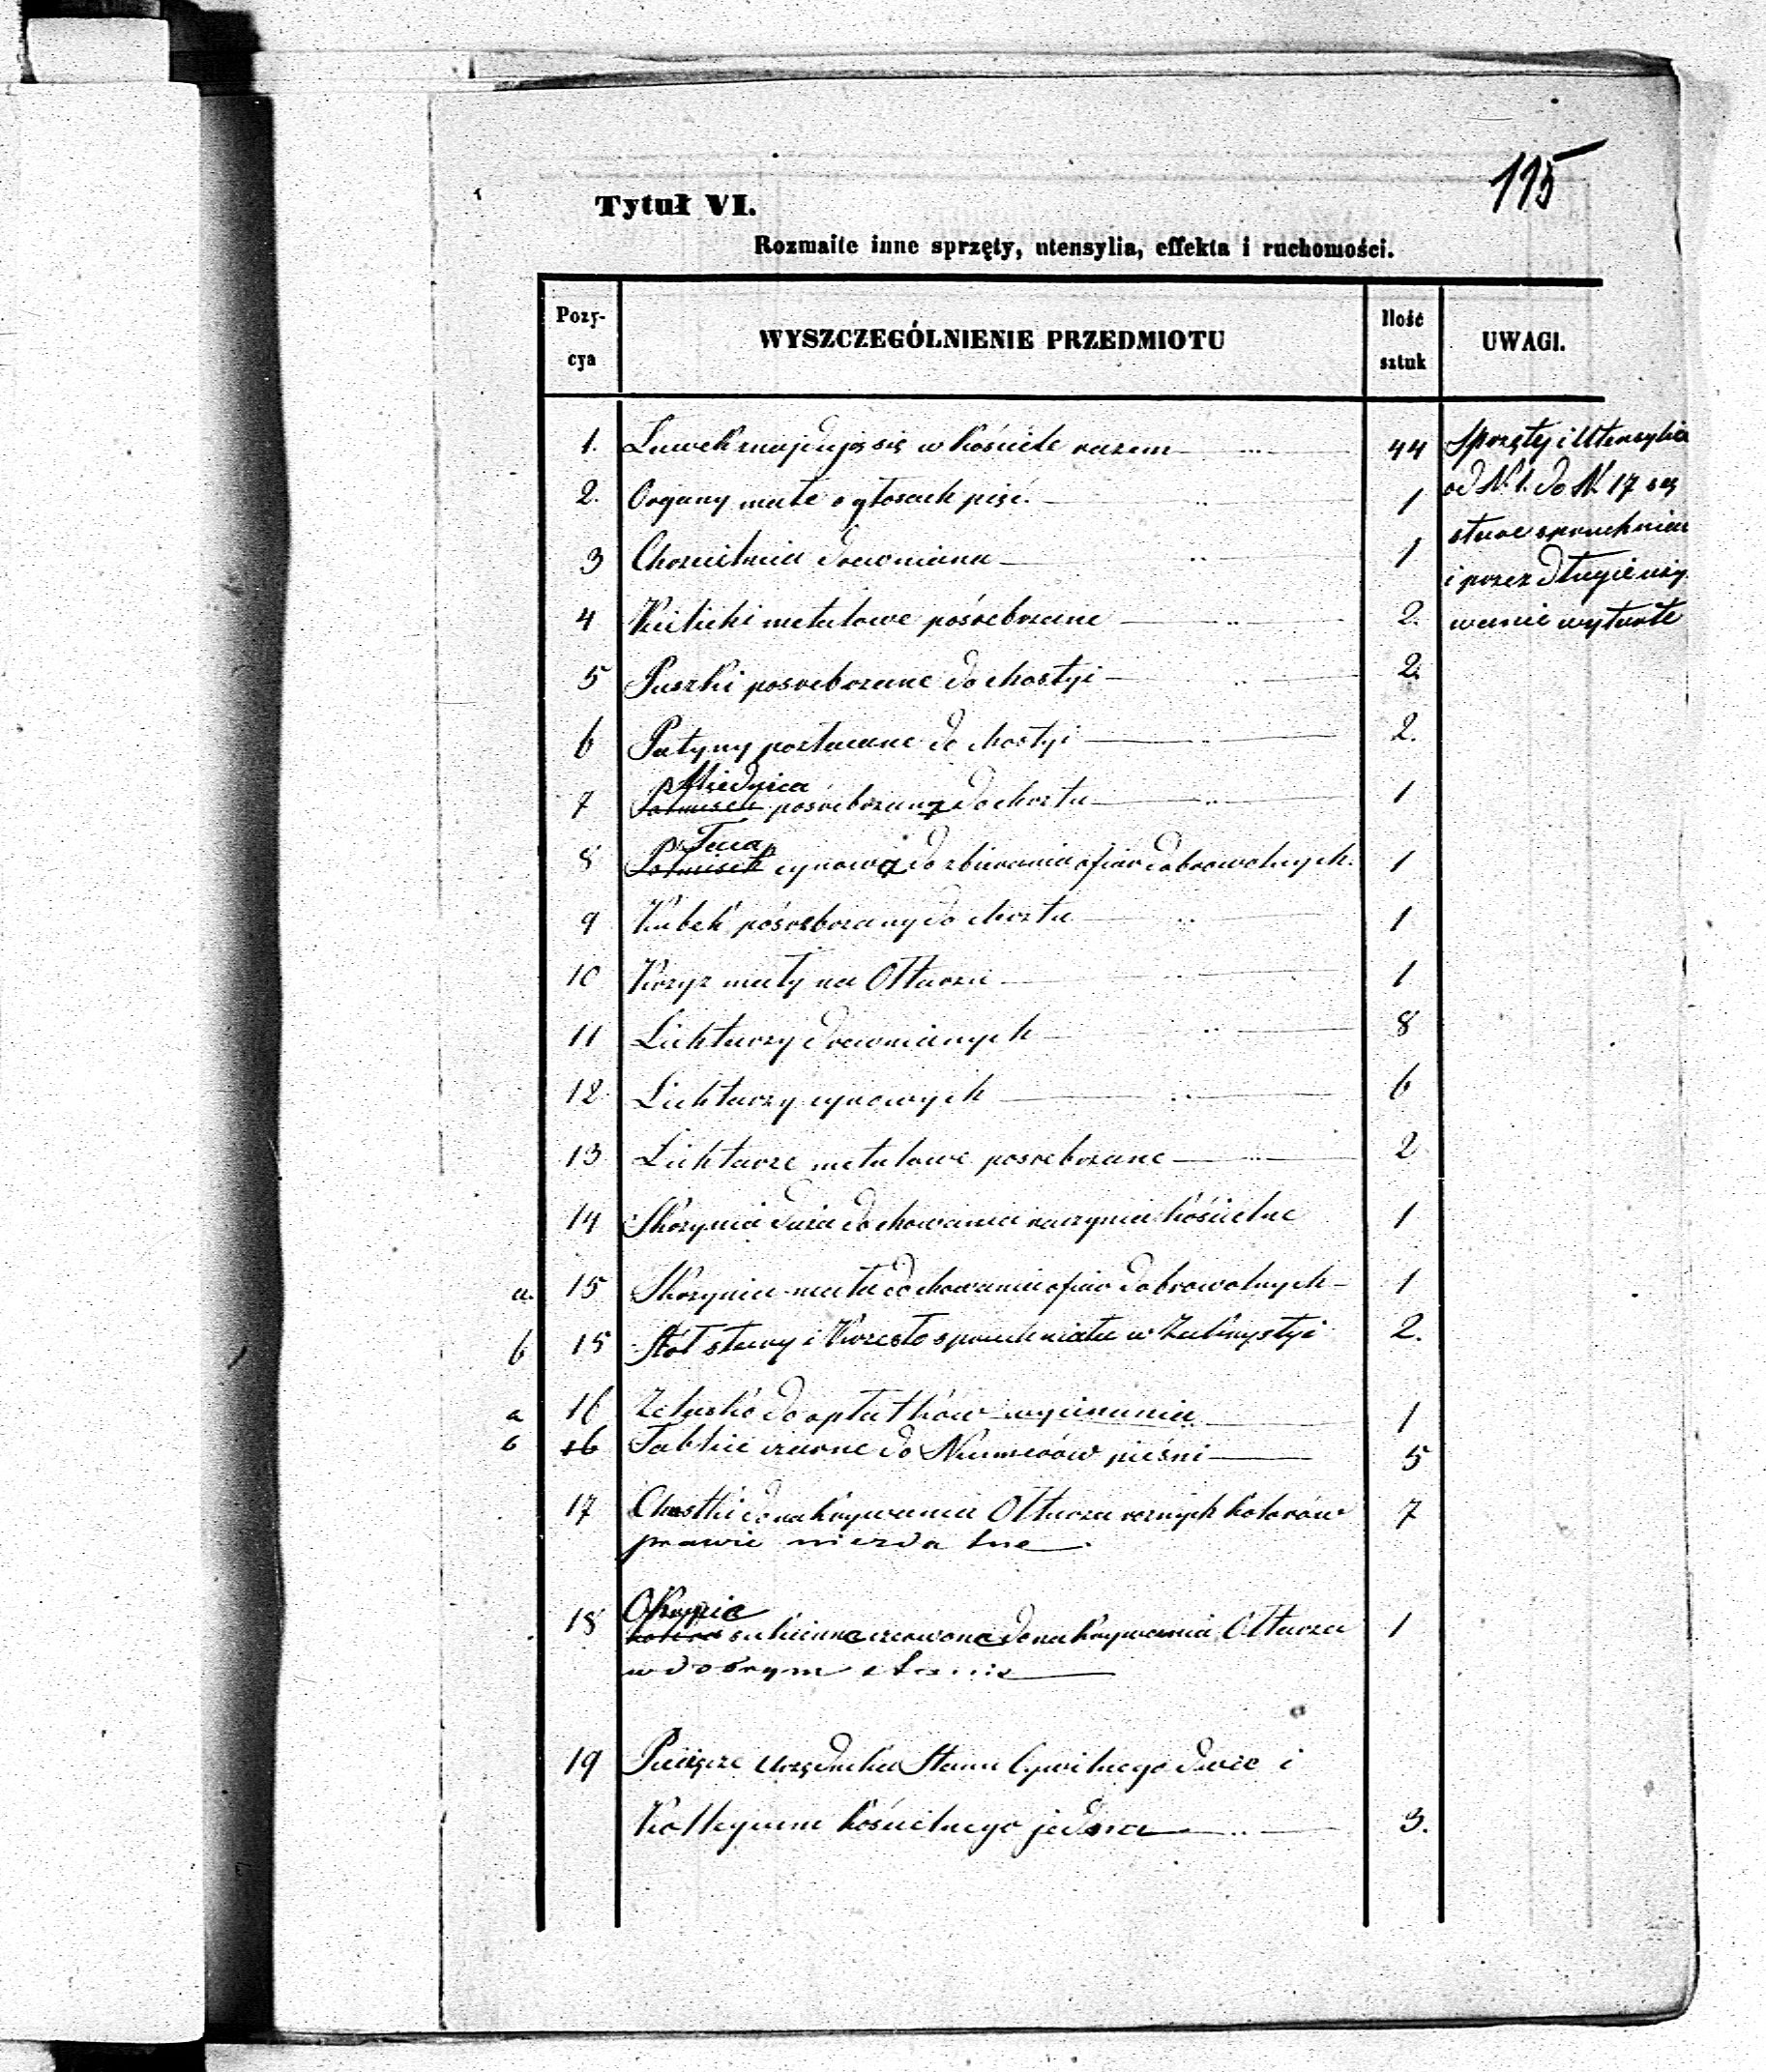 115
Tytuł VI.
Rozmaite inne sprzęty, utensylia, effekta i ruchomości.
Pozy-cya WYSZCZEGÓLNIENIE PRZEDMIOTU Ilość sztuk UWAGI.
1. Ławek znajduje się w kościele razem 44
2. Organy małe o głosach pięć. 1
3 Chrzcielnia drewniana 1
4 Kielichi metalowe pośrebrzane 2.
5 Puszki posrebrzane do chostyi 2.
6 Patyny pozłacane do chostyi 2.
Miednica
7 Pólmisek pośrebrzana do chrztu 1
Taca
8 Pólmisek cynowa do zbierania ofiar dobrowolnych. 1
9 Kubek pośrebrzany do chrztu 1
10 Krzyz mały na Ołtarzu 1
11 Lichtarzy drewnianych 8
12 Lichtarzy cynowych 6
13 Lichtarze metalowe posrebrzane 2
14 Skrzynia duża do chowania naczynia kościelne 1
a. 15 Skrzynia mała do chowania ofiar dobrowolnych 1
b 15 Stół stary i Krzesło spruchniałe w Zakrystyi 2.
a 16 Zelasko do opłatków wycinania 1
b 16 Tablice czarne do Numerów pieśni 5
17 Chustki do nakrywania Ołtarza roznych kolorów 7
prawie niezdatne.
Okrycie
18 sukienne czerwone do nakrywania Ołtarza 1
w dobrym stanie
19 Pieczęcie Urzędnika Stanu Cywilnego dwie i
Kollegium kościelnego jedna 3.
Sprzęty i Utensylia
od N. 1. do N. 17 są
stare spruchniałe
i przez długie uży
wanie wytarte